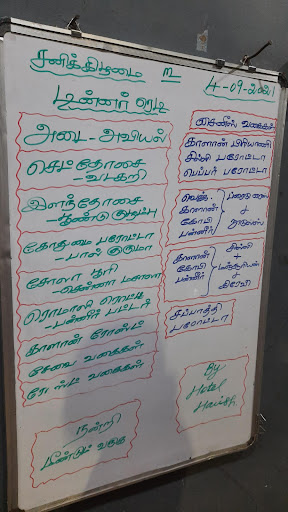 சனிக்கிழமை
4-09-2021
டின்னர் ரெடி
அடை - அவியல்
செட்தோசை
- வடகறி
இளந்தோசை
கோதுமை பரோட்டா
- பால் குருமா
சோலா பூரி
- சென்னா மசாலா
ரொமாலி ரொட்டி
- பன்னீர் பட்டர்
காளான் ரோஸ்ட்
சேவை வகைகள்
ரோஸ்ட் வகைகள்
நன்றி
மீண்டும் வருக
சைனீஸ் வகைகள்
காளான் பிரியாணி
சில்லி பரோட்டா
பெப்பர் பரோட்டா
வெஜ்.
காளான்
கோபி
பன்னீர்
பிரைடு ரைஸ்
+
நூடுல்ஸ்
காளான்
கோபி
பன்னீர்
சில்லி
+
மஞ்சூரியன்
+
கிரேவி
சப்பாத்தி
பரோட்டா
By
Hotel